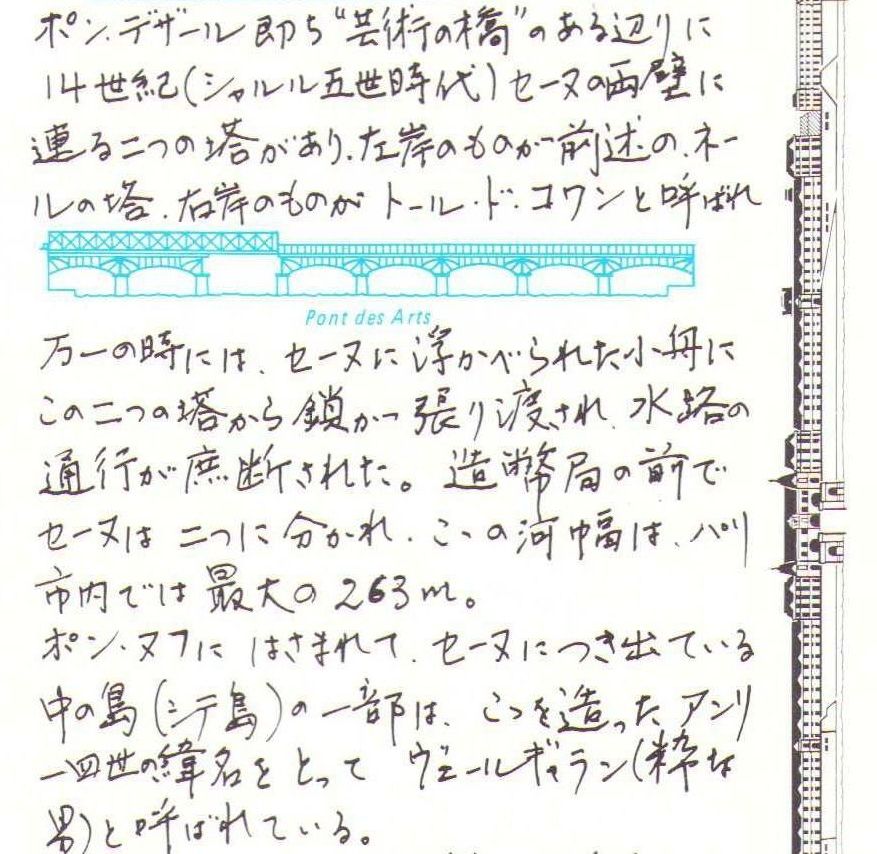 ポン・デザール即ち“芸術の橋”のある辺りに
14世紀(シャルル五世時代)セーヌの両壁に
連る二つの塔があり、左岸のものが前述の、ネー
ルの塔、右岸のものがトール・ド・コワンと呼ばれ
Pont des Arts
万一の時には、セーヌに浮かべられた小舟に
この二つの塔から鎖が張り渡され、水路の
通行が庶断された。造幣局の前で
セーヌは二つに分かれ、ここの河幅は、パリ
市内では最大の263m。
ポン・ヌフにはさまれて、セーヌにつき出ている
中の島(シテ島)の一部は、こゝを造ったアンリ
四世の緯名をとって ヴェールギャラン(粋な
男)と呼ばれている。